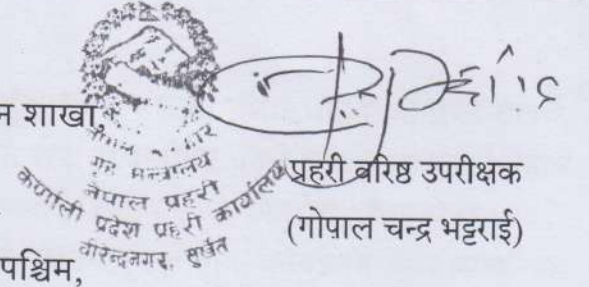 न शाखा,
नेपाल सरकार
गृह मन्त्रालय
नेपाल प्रहरी
कर्णाली प्रदेश प्रहरी कार्यालय
वीरेन्द्रनगर, सुर्खेत
प्रहरी वरिष्ठ उपरीक्षक
(गोपाल चन्द्र भट्टराई)
पश्चिम,